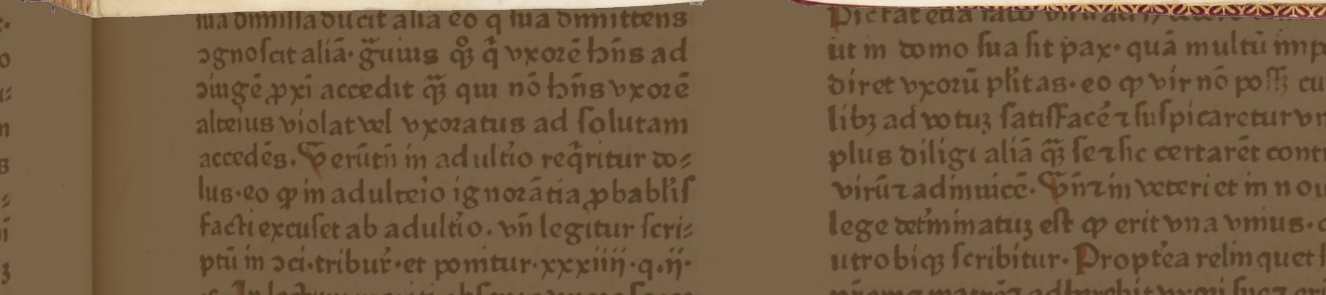 sua dimissa ducit alia eo q sua dimittens
ↄgnoscit aliā· gͣuius qͦꝫ q̄ vxorē hn̄s ad
ↄiugē ꝓxi accedit qͣꝫ qui nō hn̄s vxorē
alteius violat vel vxoratus ad solutam
accedēs. Verūtn̄ in adultio reqͥritur do⸗
lus·eo ꝙ in adulteio ignorātia ꝓbabliſ
facti excuset ab adultio. vn̄ legitur scri⸗
ptū in ↄci·tribur̄·et ponitur·xxxiiij·q·ij·
ut in domo sua sit pax· quā multū imp
diret vxorū pl̄itas·eo ꝙ vir nō poss̄ꝫ cu
libꝫ ad votuꝫ satisfacē ⁊ suspicaretur vr
plus diligi aliā qͣꝫ se ⁊ sic certarēt cont
virū ⁊ adinuicē· Vn̄ ⁊ in veteri et in nou
lege determinatuꝫ est ꝙ erit vna vnius·
utrobiqꝫ scribitur· Propt̄ea relinquet